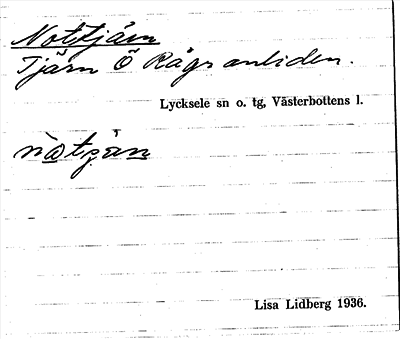 Nottjärn
Tjärn Ö Rågranliden.
Lycksele sn o. tg, Västerbottens l.
Lisa Lidberg 1936.